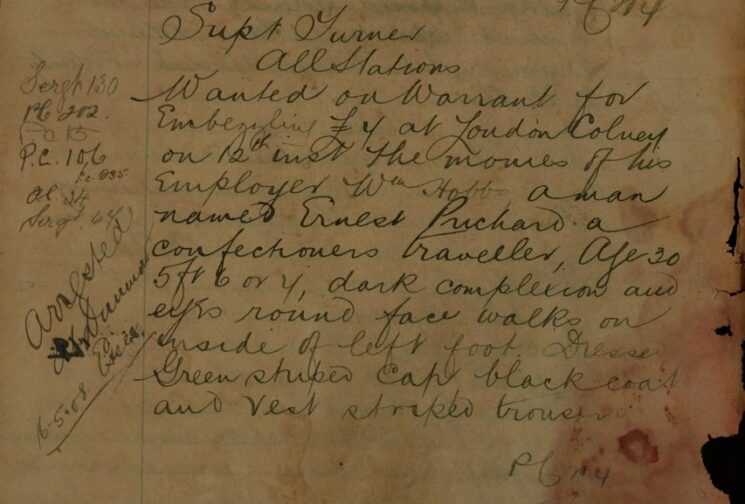 Supt Turner
All Stations
Wanted on Warrant for
Embezzling £4 at London Colney
on 12th inst the monies of his
Employer Wm Hobbs a man
named Ernest Prichard a
confectioners traveller, Age 30
5ft 6 or 7, dark complexion and
eyes round face walks on
inside of left foot. Dressed
Green striped Cap black coat
and Vest striped trousers
Sergt 130
PC 202.
P.C. 106
Sergt 64
Arrested
16-5-08